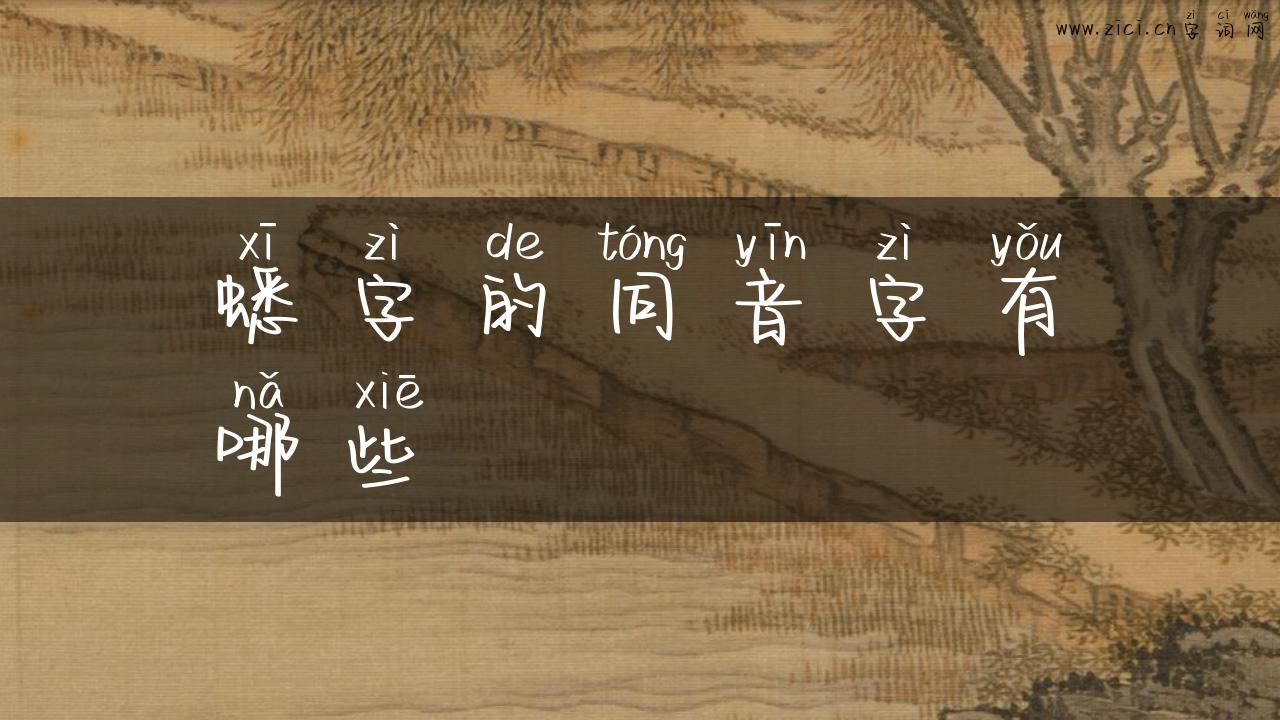 zì cí wǎng
www.zici.cn字词网
xī zì de tóng yīn zì yǒu
蟋字的同音字有
nǎ xiē
哪些